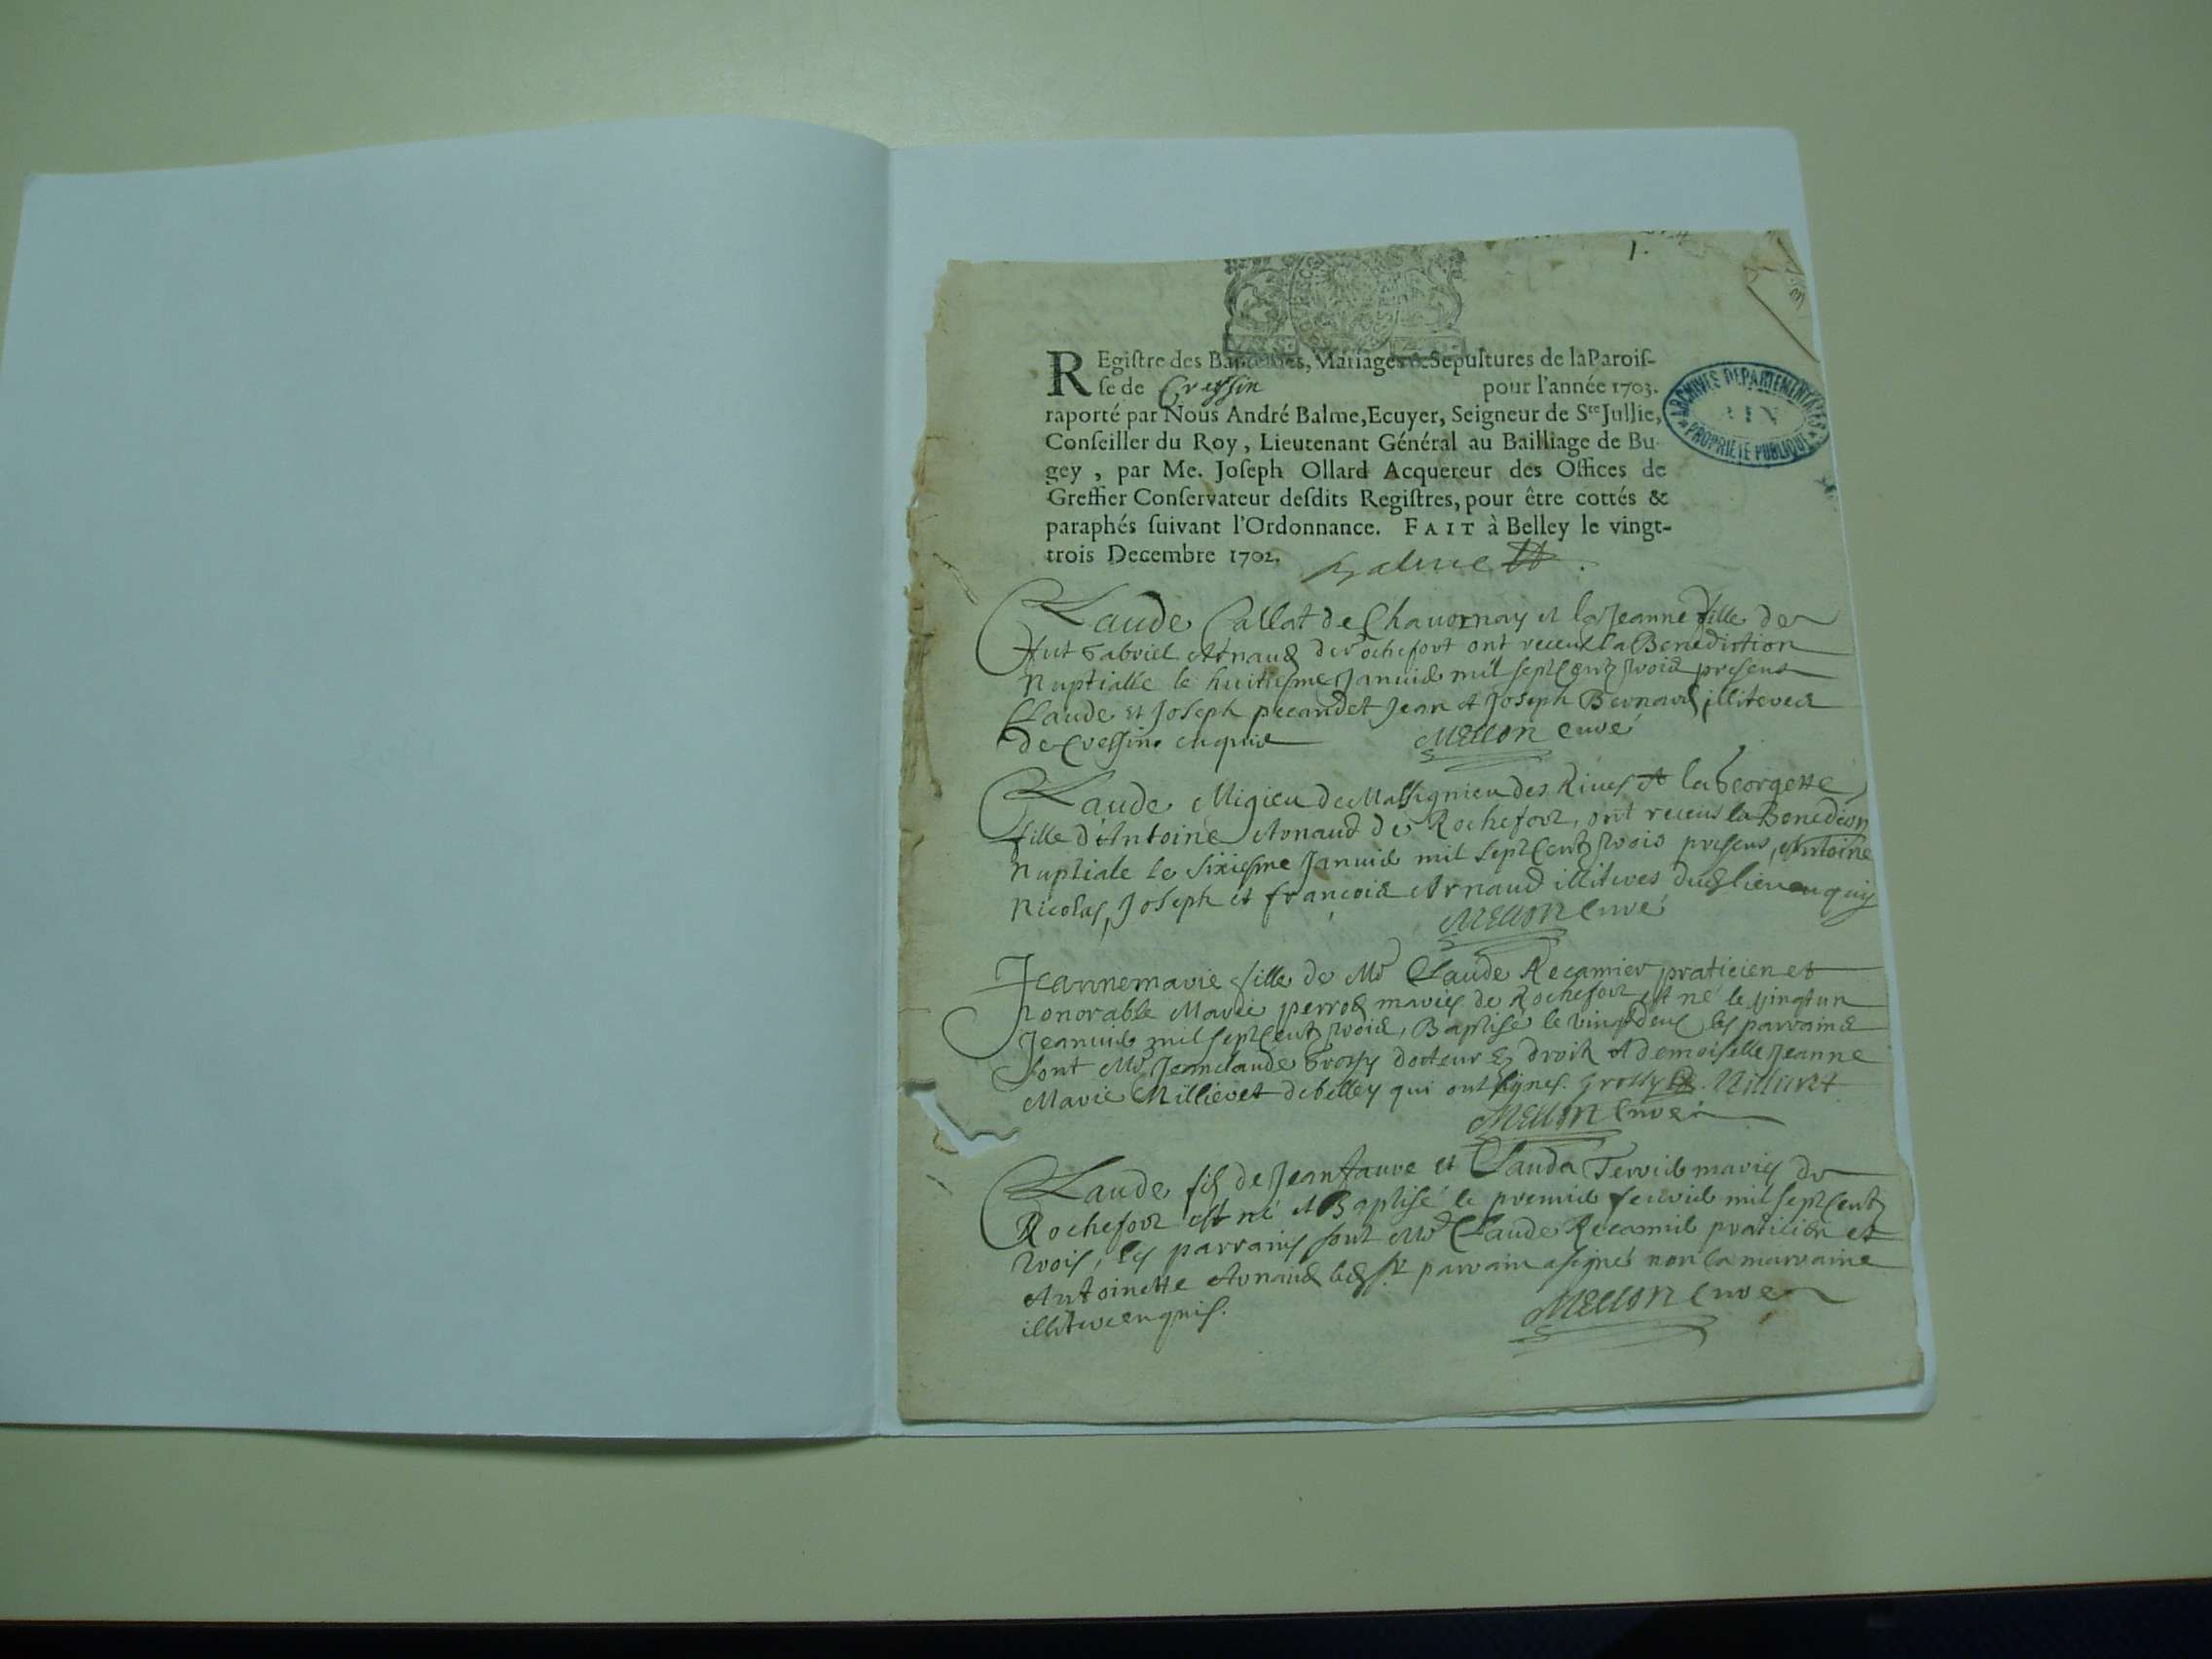 1.
ARCHIVES DEPARTEMENTALES
AIN
PROPRIETE PUBLIQUE
REgistre des Baptemes, Mariages & Sepultures de la Parois-
se de Cressin pour l'année 1703.
raporté par Nous André Balme, Ecuyer, Seigneur de Ste Jullie,
Conseiller du Roy, Lieutenant Général au Bailliage de Bu-
gey, par Me. Joseph Ollard Acquereur des Offices de
Greffier Conservateur desdits Registres, pour être cottés &
paraphés suivant l'Ordonnance. FAIT à Belley le vingt-
trois Decembre 1702. Balme
Claude Callat de Chavornay et la Jeanne fille de
Gabriel Arnaud de Rochefort ont receu la Benediction
Nuptialle le huitiesme Janvier mil sept cent trois presens
Claude et Joseph pecandet Jean et Joseph Bernard illiteres
de Cressin enquis Mellon curé
Claude Migieu de Massignieu des Rives et la Georgette
fille d'Antoine Arnaud de Rochefort, ont receus la Benedion
Nuptiale le sixiesme Janvier mil sept cent trois presens, Antoine
Nicolas, Joseph et francois Arnaud illiteres dud lieu enquis
Mellon Curé
Jeannemarie fille de Mr Claude Recamier praticien et
honorable Marie perrod maries de Rochefort est né le vingt un
Jeanvier mil sept cent trois, Baptisé le vingt deux les parrains
sont Mr Jeanclaude Grossy docteur droit et demoiselle Jeanne
Marie Millieret de belley qui ont signes. Grossy Millieret
Mellon Curé
Claude fils de Jean faure et Clauda Tervier maries de
Rochefort est né et Baptisé le premier fevrier mil sept cent
trois, les parrains sont Mr Claude Recamier praticien et
Antoinette Arnaud led Sr parrain a signé non la marraine
illitere enquis. Mellon Curé